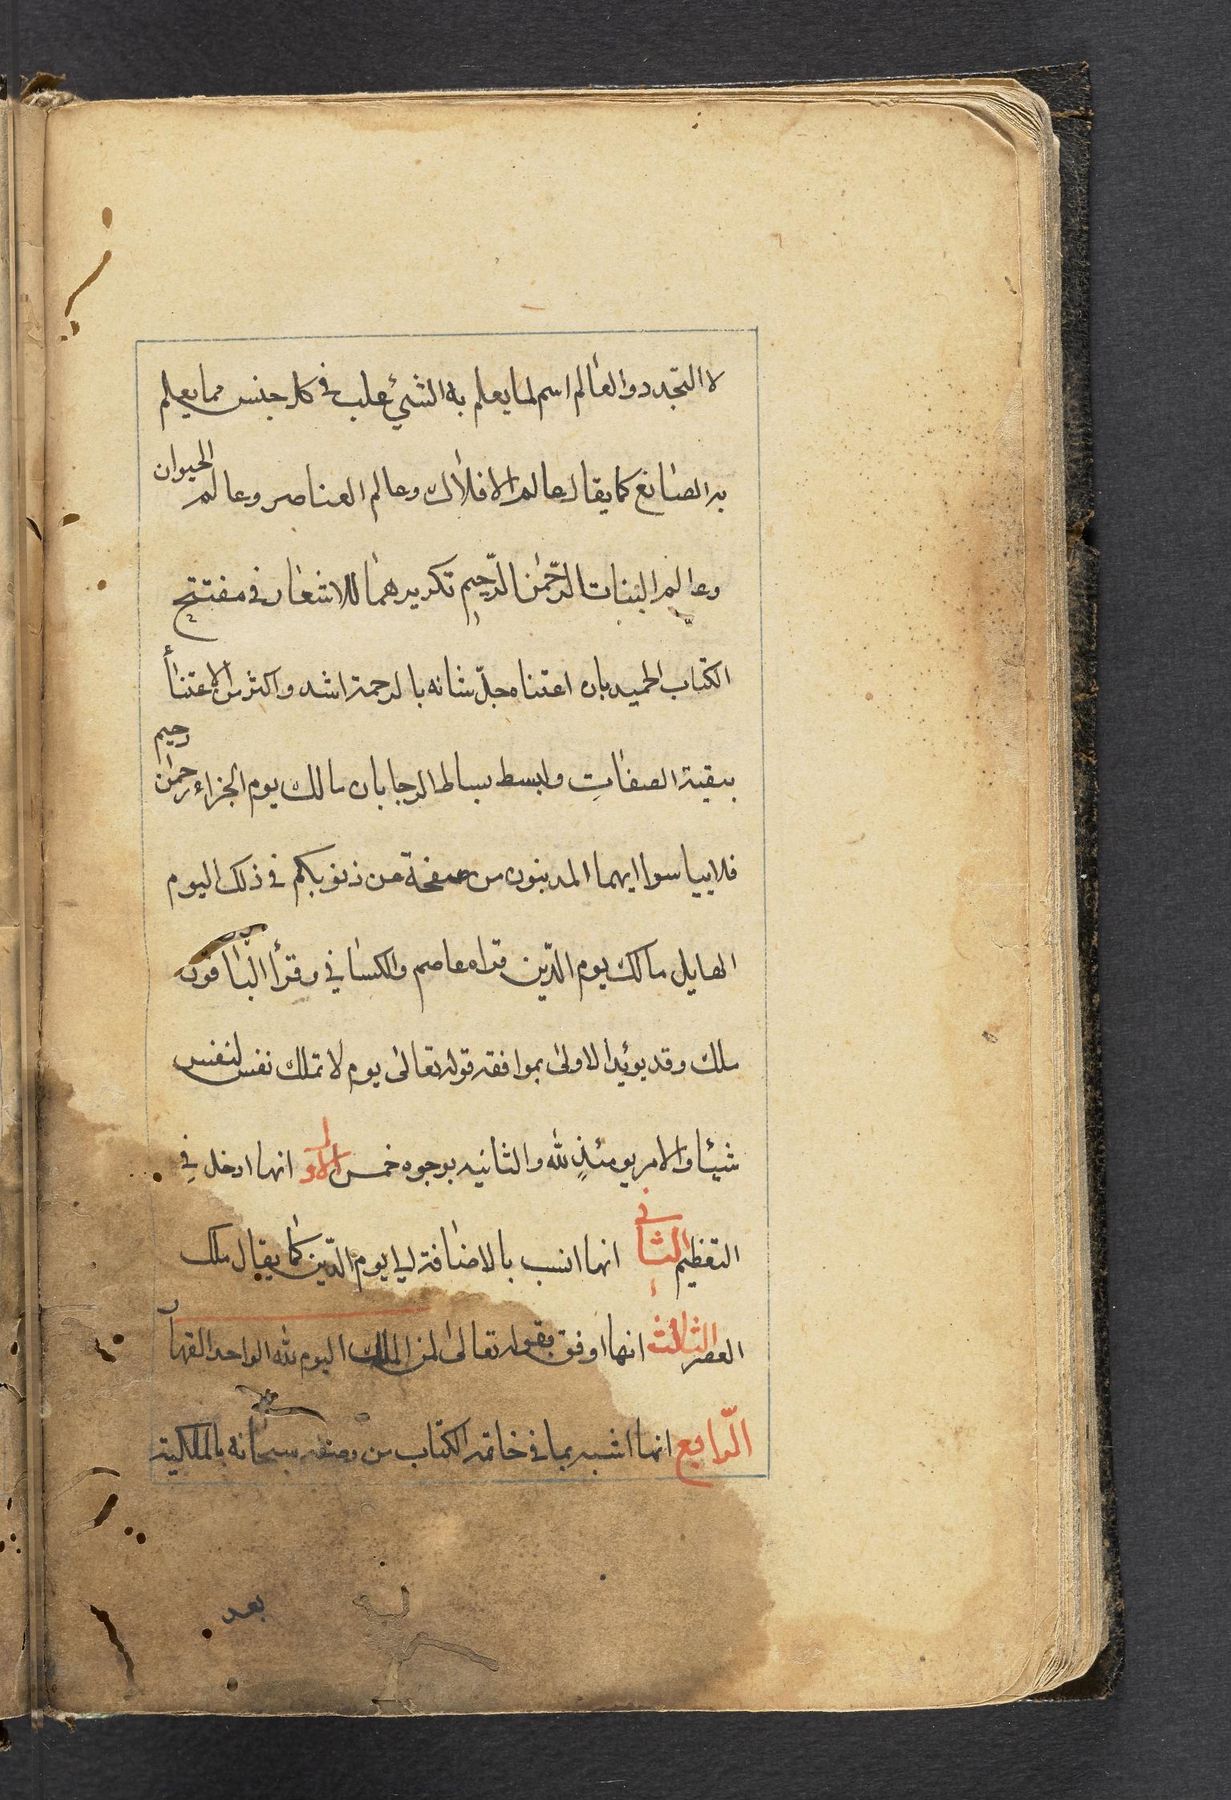 لا التجدد والعالم اسم لما يعلم به الشئ غلب في كل جنس مما يعلم
به الصانع كما يقال عالم الافلاك وعالم العناصر وعالم الحيوان
وعالم النبات الرّحمن الرّحيم تكريرهما للاشعار في مفتتح
الكتاب الحميد بان اعتناه جلّ شانه بالرحمة اشد واكثر من الاعتنأ
ببقية الصفات ولبسط بساط الرجا بان مالك يوم الجزاء رحمن رحيم
فلا يياسوا ايها المذنبون من صفحة عن ذنوبكم في ذلك اليوم
الهايل مالك يوم الدّين قراه عاصم والكسائي وقرأ الباقون
ملك وقد يوئيد الاولى بموافقه قوله تعالى يوم لا تملك نفس لنفس
شيئا والامر يومئذ لله والثانيه بوجوه خمس الاول انها ادخل في
التعظيم الثاني انها انسب بالاضافة الى يوم الدّين كما يقال ملك
العصر الثالث انها اوفق بقوله تعالى لمن الملك اليوم لله الواحد القهار
الرّابع انها اشبه بما في خاتمه الكتاب من وصفه سبحانه بالملكية
بعد